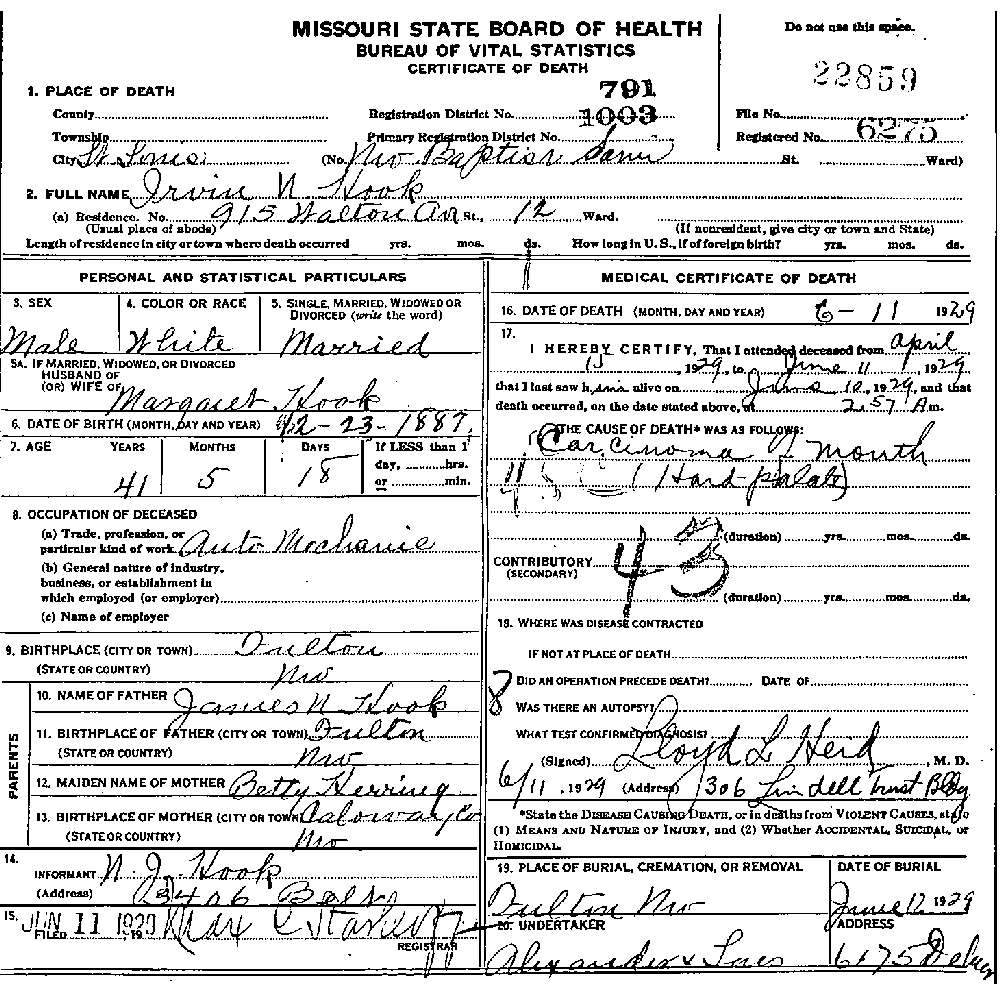 MISSOURI STATE BOARD OF HEALTH
BUREAU OF VITAL STATISTICS
CERTIFICATE OF DEATH
Do not use this space.
22859
1. PLACE OF DEATH
County
Registration District No. 791
File No.
Township
Primary Registration District No. 1003
Registered No. 6275
City St Louis (No. Mo Baptist St. Ward)
2. FULL NAME Irvin N Hook
(a) Residence. No. 915 Walton Av St., 12 Ward.
(Usual place of abode) (If nonresident, give city or town and State)
Length of residence in city or town where death occurred yrs. mos. ds. How long in U.S., if of foreign birth? yrs. mos. ds.
PERSONAL AND STATISTICAL PARTICULARS
3. SEX
Male
4. COLOR OR RACE
White
5. SINGLE, MARRIED, WIDOWED OR
DIVORCED (write the word)
Married
5A. IF MARRIED, WIDOWED, OR DIVORCED
HUSBAND OF
(OR) WIFE OF Margaret Hook
6. DATE OF BIRTH (MONTH, DAY AND YEAR) 12-23-1887
7. AGE YEARS MONTHS DAYS If LESS than 1
day, hrs.
or min.
41 5 18
8. OCCUPATION OF DECEASED
(a) Trade, profession, or
particular kind of work Auto Mechanic
(b) General nature of industry,
business, or establishment in
which employed (or employer)
(c) Name of employer
9. BIRTHPLACE (CITY OR TOWN) Fulton
(STATE OR COUNTRY) Mo
PARENTS
10. NAME OF FATHER James N Hook
11. BIRTHPLACE OF FATHER (CITY OR TOWN) Fulton
(STATE OR COUNTRY) Mo
12. MAIDEN NAME OF MOTHER Betty Herring
13. BIRTHPLACE OF MOTHER (CITY OR TOWN) Caloway Co
(STATE OR COUNTRY) Mo
14.
INFORMANT N. J. Hook
(Address) 3406
15.
FILED JUN 11 1929 , 19 Max C Starkloff
REGISTRAR
MEDICAL CERTIFICATE OF DEATH
16. DATE OF DEATH (MONTH, DAY AND YEAR) 6-11 1929
17.
I HEREBY CERTIFY, That I attended deceased from April
15, 1929, to June 11, 1929
that I last saw him alive on June 10, 1929, and that
death occurred, on the date stated above, at 2:57 A m.
THE CAUSE OF DEATH* WAS AS FOLLOWS:
Carcinoma of Mouth
(Hard palate)
(duration) yrs. mos. ds.
CONTRIBUTORY
(SECONDARY)
43
(duration) yrs. mos. ds.
18. WHERE WAS DISEASE CONTRACTED
IF NOT AT PLACE OF DEATH
8
DID AN OPERATION PRECEDE DEATH? DATE OF
WAS THERE AN AUTOPSY?
WHAT TEST CONFIRMED DIAGNOSIS?
(Signed) Lloyd L Heid, M. D.
6/11, 1929 (Address) 1306 Lindell Trust Bldg
*State the DISEASE CAUSING DEATH, or in deaths from VIOLENT CAUSES, state
(1) MEANS AND NATURE OF INJURY, and (2) Whether ACCIDENTAL, SUICIDAL, or
HOMICIDAL.
19. PLACE OF BURIAL, CREMATION, OR REMOVAL
Fulton Mo
DATE OF BURIAL
June 12 1929
20. UNDERTAKER
Alexander & Sons
ADDRESS
6175 Delmar